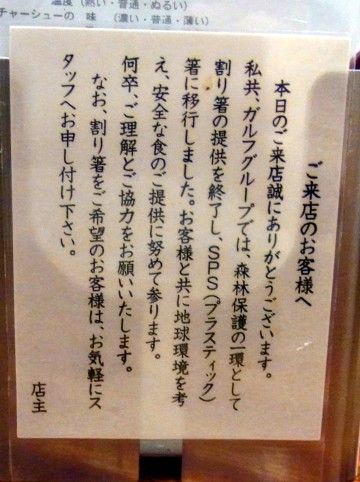 温度（熱い・普通・ぬるい）
チャーシューの 味 （濃い・普通・薄い）
ご来店のお客様へ
本日のご来店誠にありがとうございます。
私共、ガルフグループでは、森林保護の一環として
割り箸の提供を終了し、SPS（プラスティック）
箸に移行しました。お客様と共に地球環境を考
え、安全な食のご提供に努めて参ります。
何卒、ご理解とご協力をお願いいたします。
なお、割り箸をご希望のお客様は、お気軽にス
タッフへお申し付け下さい。
店主